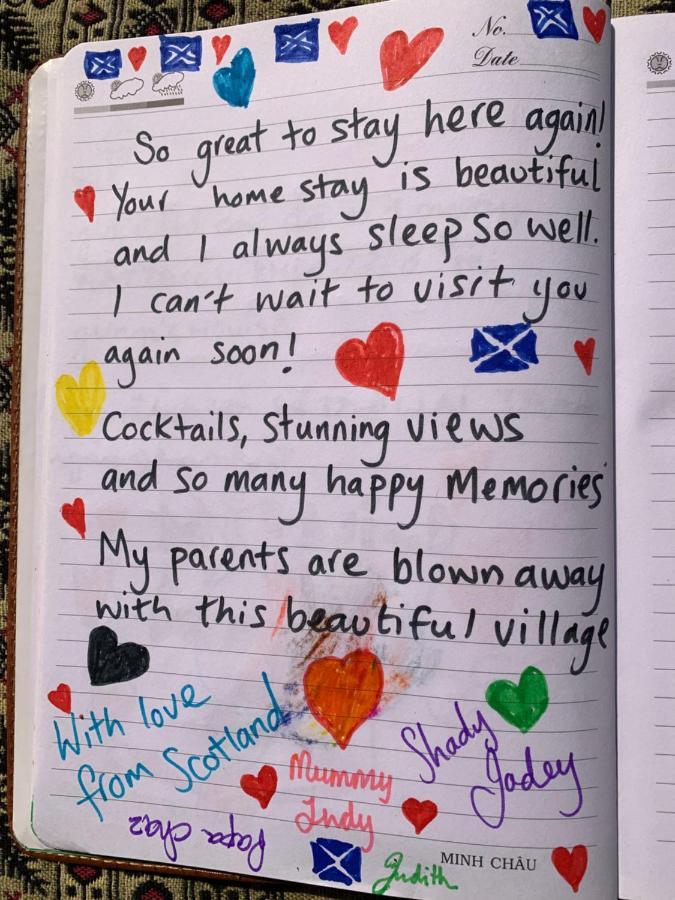 No.
Date
So great to stay here again!
Your home stay is beautiful
and I always sleep so well.
I can't wait to visit you
again soon!
Cocktails, stunning views
and so many happy Memories
My parents are blown away
with this beautiful village
With love
from Scotland
Mummy
Indy
Shady
Jadey
Papa Chaz
Judith
MINH CHÂU